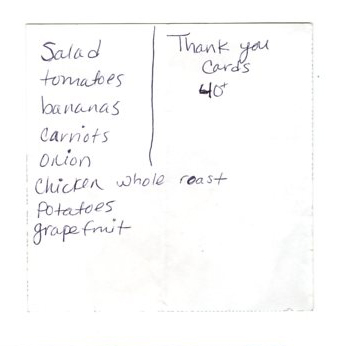 Salad
tomatoes
bananas
carriots
onion
Chicken whole roast
potatoes
grapefruit
Thank you
Cards
40+